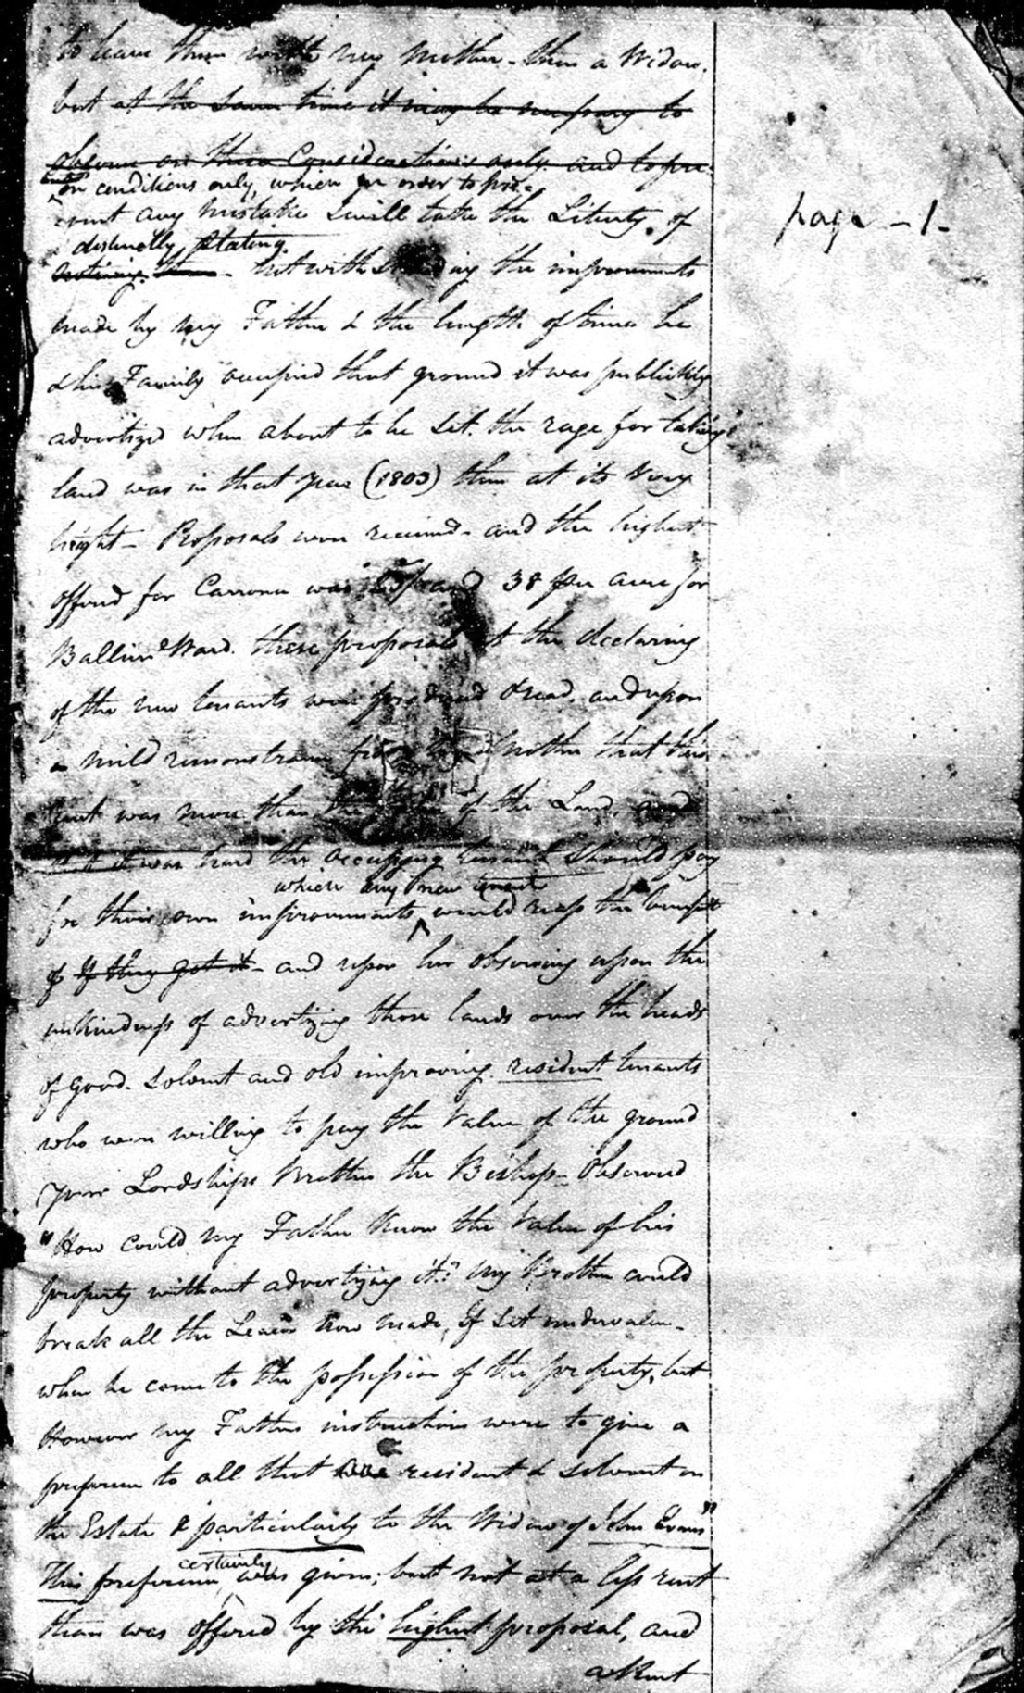 to leave them with my Mother - then a Widow.
but at the same time it may be necessary to
observe on these Considerations only and to pre
but on conditions only, which in order to pre-
vent any mistake I will take the Liberty of
distinctly stating
noticing them - Notwithstanding the improvements
made by my Father & the length of time he
& his Family occupied that ground it was publickly
advertized when about to be Set. the rage for taking
land was in that year (1803) then at its very
height - Proposals were received - and the highest
offered for Carrona was and 38 per acre for
Ballin Ward. these proposals at the declaring
of the new tenants were produced & read, and upon
a mild remonstrance from my Mother that this
rent was more than the of the Land, and
that it was hard the occupying tenants should pay
which any new tenant
for their own improvements, would reap the benefit
of If they got it - and upon her observing upon the
unkindness of advertizing those lands over the heads
of good. solvent and old improving. resident tenants
who were willing to pay the Value of the ground
your Lordships Brother the Bishop - Observed
"How could my Father know the Value of his
property without advertizing it?" My Brother could
break all the Leases now made, If Set undervalue -
when he came to the possession of the property, but
However my Fathers instructions were to give a
preference to all that are resident & solvent on
the Estate & particularly to the Widow of John Evans"
certainly
This preference was given; but not at a less rent
than was offered by the highest proposal, and
a Rent
page - 1 -